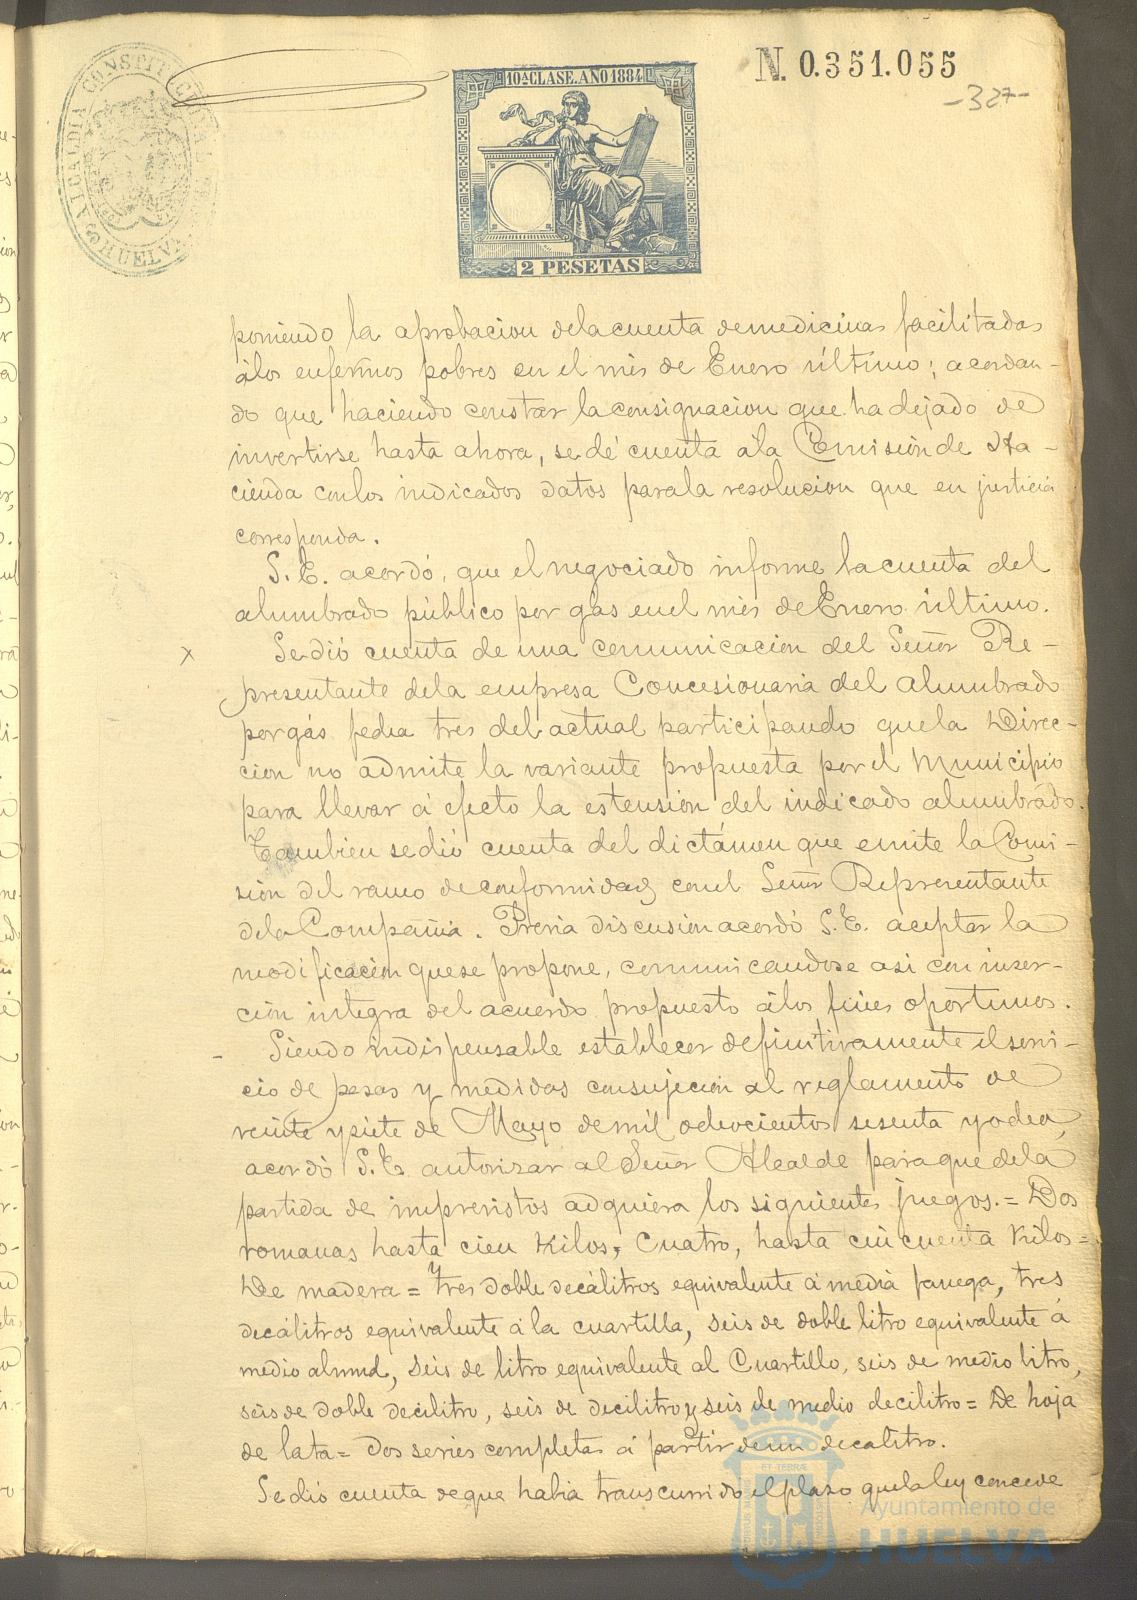 ALCALDIA CONSTITUCIONAL DE HUELVA
10ª CLASE. AÑO 1884
2 PESETAS
N. 0.351.055
-327-
poniendo la aprobacion dela cuenta demedicinas facilitadas
álos enfermos pobres en el més de Enero último; acordan-
do que haciendo constar la consignacion que ha dejado de
invertirse hasta ahora, se dé cuenta ála Comisión de Ha-
cienda conlos indicados datos parala resolucion que en justicia
corresponda.
S. E. acordó, que el negociado informe la cuenta del
alumbrado público por gás en el més de Enero último.
x Se dió cuenta de una comunicacion del Señor Re-
presentante dela empresa Concesionaria del alumbrado
por gás fecha tres del actual participando quela Direc-
cion no admite la variante propuesta por el Municipio
para llevar á efecto la estensión del indicado alumbrado.
Tambien se dió cuenta del dictámen que emite la Comi-
sión del ramo de conformidad con el Señor Representante
dela Compañia. Prévia discusion acordó S. E. aceptar la
modificación quese propone, comunicandose asi con inser-
ción integra del acuerdo propuesto álos fines oportunos.
- Siendo indispensable establecer definitivamente el servi-
cio de pesas y medidas consujeción al reglamento de
veinte y siete de Mayo de mil ochocientos sesenta y ocho,
acordó S. E. autorizar al Señor Alcalde para que dela
partida de imprevistos adquiera los siguientes juegos. = Dos
romanas hasta cien Kilos, Cuatro, hasta cincuenta Kilos =
De madera = Tres doble decálitros equivalente á media fanega, tres
decálitros equivalente á la cuartilla, seis de doble litro equivalente á
medio almud, seis de litro equivalente al Cuartillo, seis de medio litro,
seis de doble decilitro, seis de decilitro y seis de medio decilitro = De hoja
de lata = dos series completas á partir de un decalitro.
Se dió cuenta de que habia transcurrido el plazo que la ley concede
Ayuntamiento de
HUELVA